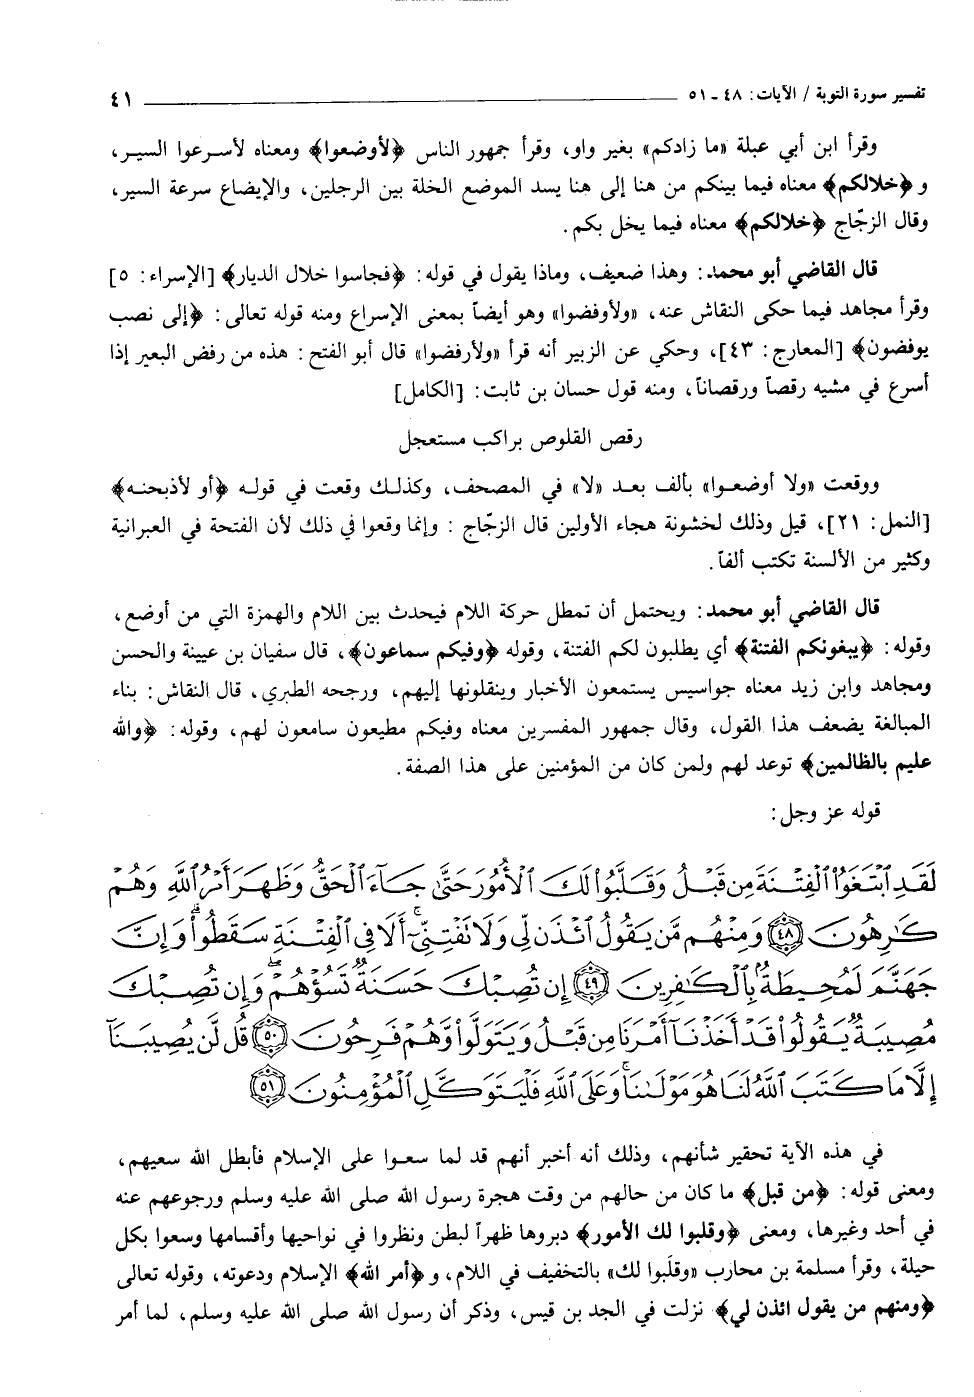 تفسير سورة التوبة / الآيات: ٤٨ - ٥١ ٤١
وقرأ ابن أبي عبلة «ما زادكم» بغير واو، وقرأ جمهور الناس ﴿لأوضعوا﴾ ومعناه لأسرعوا السير،
و ﴿خلالكم﴾ معناه فيما بينكم من هنا إلى هنا يسد الموضع الخلة بين الرجلين، والإيضاع سرعة السير،
وقال الزجّاج ﴿خلالكم﴾ معناه فيما يخل بكم.
قال القاضي أبو محمد: وهذا ضعيف، وماذا يقول في قوله: ﴿فجاسوا خلال الديار﴾ [الإسراء: ٥]
وقرأ مجاهد فيما حكى النقاش عنه، «ولأوفضوا» وهو أيضاً بمعنى الإسراع ومنه قوله تعالى: ﴿إلى نصب
يوفضون﴾ [المعارج: ٤٣]، وحكي عن الزبير أنه قرأ «ولأرفضوا» قال أبو الفتح: هذه من رفض البعير إذا
أسرع في مشيه رقصاً ورقصاناً، ومنه قول حسان بن ثابت: [الكامل]
رقص القلوص براكب مستعجل
ووقعت «ولا أوضعوا» بألف بعد «لا» في المصحف، وكذلك وقعت في قوله ﴿أو لأذبحنه﴾
[النمل: ٢١]، قيل وذلك لخشونة هجاء الأولين قال الزجّاج: وإنما وقعوا في ذلك لأن الفتحة في العبرانية
وكثير من الألسنة تكتب ألفاً.
قال القاضي أبو محمد: ويحتمل أن تمطل حركة اللام فيحدث بين اللام والهمزة التي من أوضع،
وقوله: ﴿يبغونكم الفتنة﴾ أي يطلبون لكم الفتنة، وقوله ﴿وفيكم سماعون﴾، قال سفيان بن عيينة والحسن
ومجاهد وابن زيد معناه جواسيس يستمعون الأخبار وينقلونها إليهم، ورجحه الطبري، قال النقاش: بناء
المبالغة يضعف هذا القول، وقال جمهور المفسرين معناه وفيكم مطيعون سامعون لهم، وقوله: ﴿والله
عليم بالظالمين﴾ توعد لهم ولمن كان من المؤمنين على هذا الصفة.
قوله عز وجل:
لَقَدِ ٱبْتَغَوُا۟ ٱلْفِتْنَةَ مِن قَبْلُ وَقَلَّبُوا۟ لَكَ ٱلْأُمُورَ حَتَّىٰ جَآءَ ٱلْحَقُّ وَظَهَرَ أَمْرُ ٱللَّهِ وَهُمْ
كَـٰرِهُونَ ﴿٤٨﴾ وَمِنْهُم مَّن يَقُولُ ٱئْذَن لِّى وَلَا تَفْتِنِّىٓ ۚ أَلَا فِى ٱلْفِتْنَةِ سَقَطُوا۟ ۗ وَإِنَّ
جَهَنَّمَ لَمُحِيطَةٌۢ بِٱلْكَـٰفِرِينَ ﴿٤٩﴾ إِن تُصِبْكَ حَسَنَةٌ تَسُؤْهُمْ ۖ وَإِن تُصِبْكَ
مُصِيبَةٌ يَقُولُوا۟ قَدْ أَخَذْنَآ أَمْرَنَا مِن قَبْلُ وَيَتَوَلَّوا۟ وَّهُمْ فَرِحُونَ ﴿٥٠﴾ قُل لَّن يُصِيبَنَآ
إِلَّا مَا كَتَبَ ٱللَّهُ لَنَا هُوَ مَوْلَىٰنَا ۚ وَعَلَى ٱللَّهِ فَلْيَتَوَكَّلِ ٱلْمُؤْمِنُونَ ﴿٥١﴾
في هذه الآية تحقير شأنهم، وذلك أنه أخبر أنهم قد لما سعوا على الإسلام فأبطل الله سعيهم،
ومعنى قوله: ﴿من قبل﴾ ما كان من حالهم من وقت هجرة رسول الله صلى الله عليه وسلم ورجوعهم عنه
في أحد وغيرها، ومعنى ﴿وقلبوا لك الأمور﴾ دبروها ظهراً لبطن ونظروا في نواحيها وأقسامها وسعوا بكل
حيلة، وقرأ مسلمة بن محارب «وقلَبوا لك» بالتخفيف في اللام، و ﴿أمر الله﴾ الإسلام ودعوته، وقوله تعالى
﴿ومنهم من يقول ائذن لي﴾ نزلت في الجد بن قيس، وذكر أن رسول الله صلى الله عليه وسلم، لما أمر